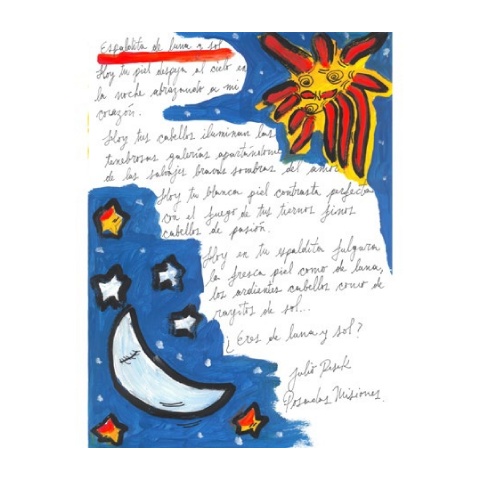 Espaldita de luna y sol
Hoy tu piel despeja al cielo en
la noche abrazando a mi
corazón.
Hoy tus cabellos iluminan las
tenebrosas galerías apartándome
de las salvajes bravas sombras del amor.
Hoy tu blanca piel contrasta perfecta
con el fuego de tus tiernos finos
cabellos de pasión.
Hoy en tu espaldita fulgura
la fresca piel como de luna,
los ardientes cabellos como de
rayitos de sol...
¿Eres de luna y sol?
Julio
Posadas Misiones.